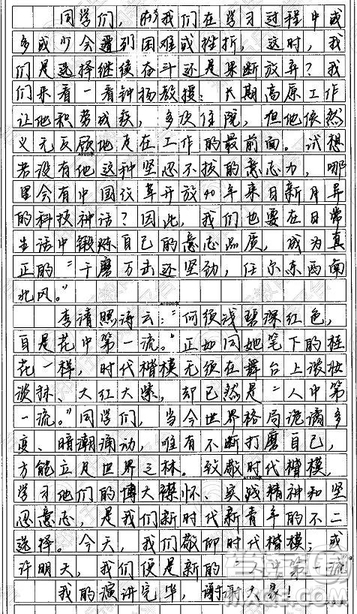 同学们，我们在学习过程中或
多或少会遇到困难或挫折，这时，我
们是选择继续奋斗还是果断放弃？我
们来看一看钟扬教授：长期高原工作
让他积劳成疾，多次住院，但他依然
义无反顾地走在工作的最前面。试想
若没有他这种坚忍不拔的意志力，哪
里会有中国改革开放40年来日新月异
的科技神话？因此，我们也要在日常
生活中锻炼自己的意志品质，成为真
正的“千磨万击还坚劲，任尔东西南
北风。”
李清照诗云：“何须浅碧深红色，
自是花中第一流。”正如同她笔下的桂
花一样，时代楷模无须在舞台上淡妆
浓抹、大红大绿，却已然是“人中第
一流。”同学们，当今世界格局诡谲多
变、暗潮涌动，唯有不断打磨自己，
方能立足世界之林。致敬时代楷模，
学习他们的博大襟怀、实践精神和坚
忍意志，是我们新时代新青年的不二
选择。今天，我们敬仰时代楷模；或
许明天，我们便是新的“人中第一流
我的演讲完毕，谢谢大家！